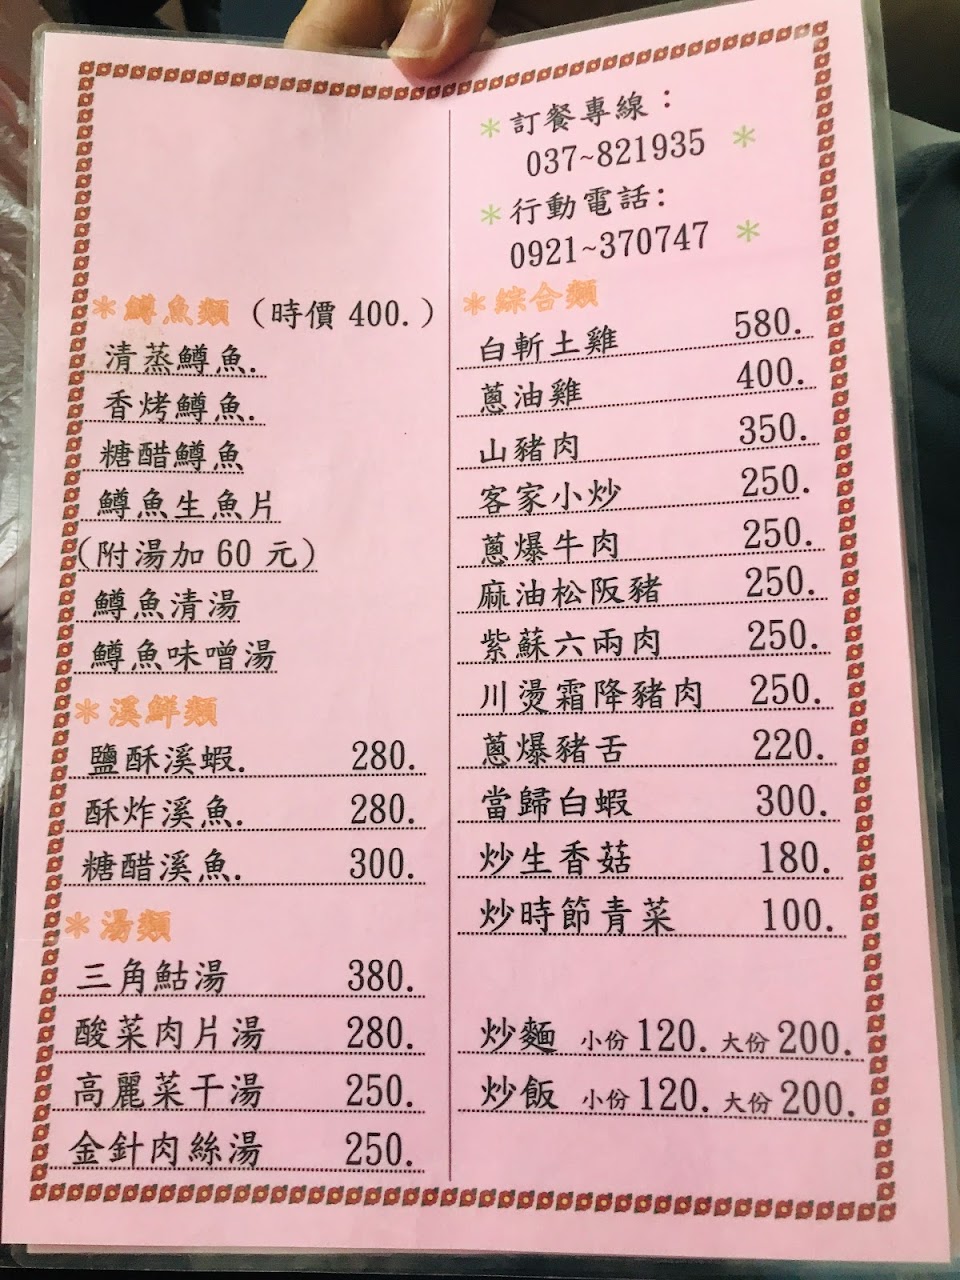 *鱒魚類（時價 400.）
清蒸鱒魚.
香烤鱒魚.
糖醋鱒魚
鱒魚生魚片
(附湯加 60 元)
鱒魚清湯
鱒魚味噌湯
*溪鮮類
鹽酥溪蝦. 280.
酥炸溪魚. 280.
糖醋溪魚. 300.
*湯類
三角鮕湯 380.
酸菜肉片湯 280.
高麗菜干湯 250.
金針肉絲湯 250.
*訂餐專線：
037~821935 *
*行動電話:
0921~370747 *
*綜合類
白斬土雞 580.
蔥油雞 400.
山豬肉 350.
客家小炒 250.
蔥爆牛肉 250.
麻油松阪豬 250.
紫蘇六兩肉 250.
川燙霜降豬肉 250.
蔥爆豬舌 220.
當歸白蝦 300.
炒生香菇 180.
炒時節青菜 100.
炒麵 小份 120. 大份 200.
炒飯 小份 120. 大份 200.